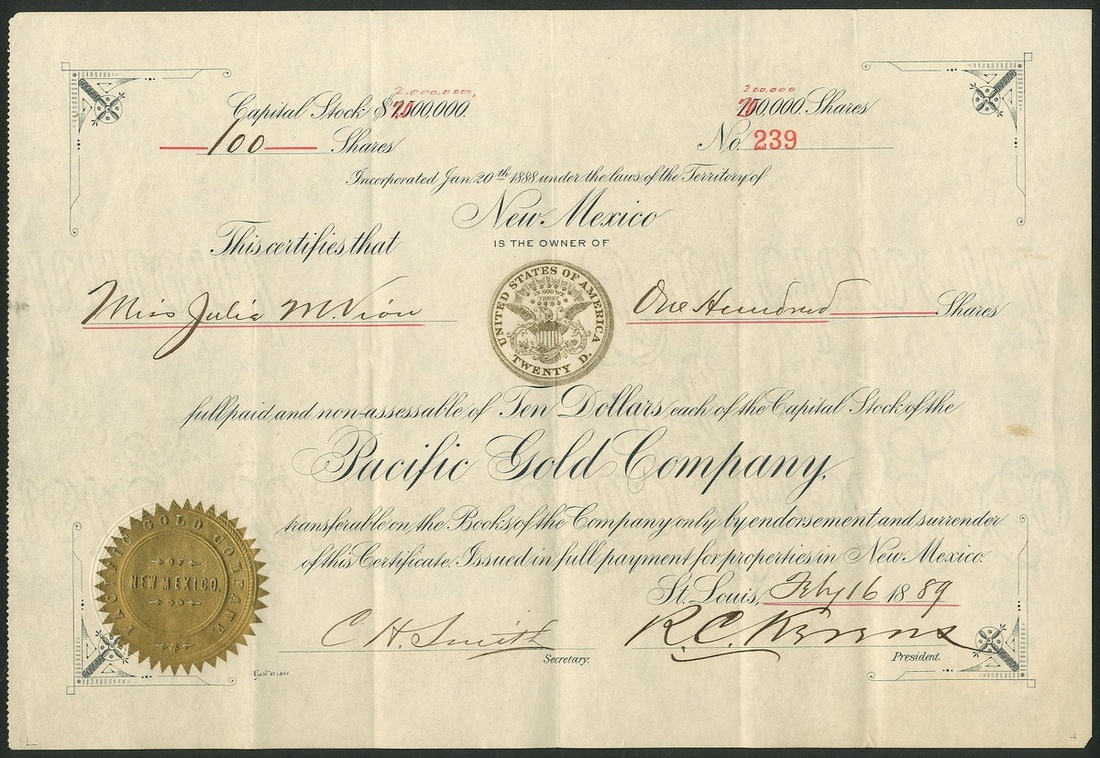 2,000,000.
200,000
Capital Stock $ 00,000.
00,000. Shares
100 Shares
No. 239
Incorporated Jan. 20th 1888 under the laws of the Territory of
New Mexico
This certifies that
IS THE OWNER OF
Miss Julia M. Vion
UNITED STATES OF AMERICA
IN GOD WE TRUST
TWENTY D.
One Hundred Shares
full paid and non-assessable of Ten Dollars each of the Capital Stock of the
Pacific Gold Company,
transferable on the Books of the Company only by endorsement and surrender
of this Certificate. Issued in full payment for properties in New Mexico.
St. Louis, Feby 16 1889
PACIFIC GOLD COMPANY.
NEW MEXICO.
C. H. Smith
R.C. Kerens
Secretary.
President.